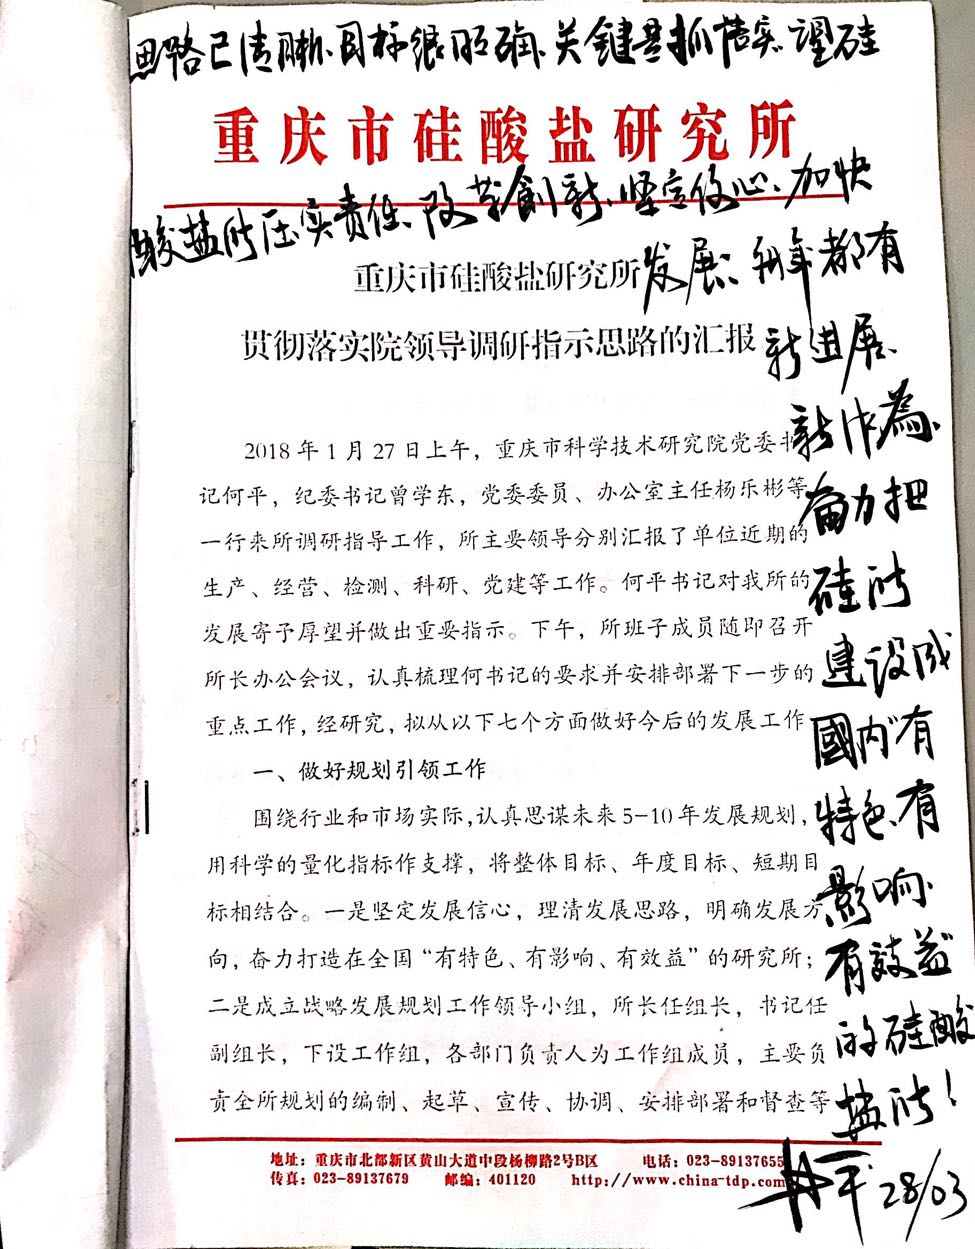 思路已清晰、目标很明确、关键是抓落实、望硅
重庆市硅酸盐研究所
酸盐所压实责任、改革創新、坚定信心、加快
重庆市硅酸盐研究所
发展、每年都有
贯彻落实院领导调研指示思路的汇报
新进展、
2018年1月27日上午，重庆市科学技术研究院党委书
新作為、
记何平，纪委书记曾学东，党委委员、办公室主任杨乐彬等
奋力把
一行来所调研指导工作，所主要领导分别汇报了单位近期的
生产、经营、检测、科研、党建等工作。何平书记对我所的
硅所
发展寄予厚望并做出重要指示。下午，所班子成员随即召开
所长办公会议，认真梳理何书记的要求并安排部署下一步的
建设成
重点工作，经研究，拟从以下七个方面做好今后的发展工作
國内有
一、做好规划引领工作
围绕行业和市场实际，认真思谋未来5-10年发展规划，
特色、有
用科学的量化指标作支撑，将整体目标、年度目标、短期目
标相结合。一是坚定发展信心，理清发展思路，明确发展方
影响、
向，奋力打造在全国“有特色、有影响、有效益”的研究所；
有效益
二是成立战略发展规划工作领导小组，所长任组长，书记任
副组长，下设工作组，各部门负责人为工作组成员，主要负
的硅酸
责全所规划的编制、起草、宣传、协调、安排部署和督查等
盐所！
地址：重庆市北部新区黄山大道中段杨柳路2号B区 电话：023-89137655
传真：023-89137679 邮编：401120 http://www.china-tdp.com
何平 28/03